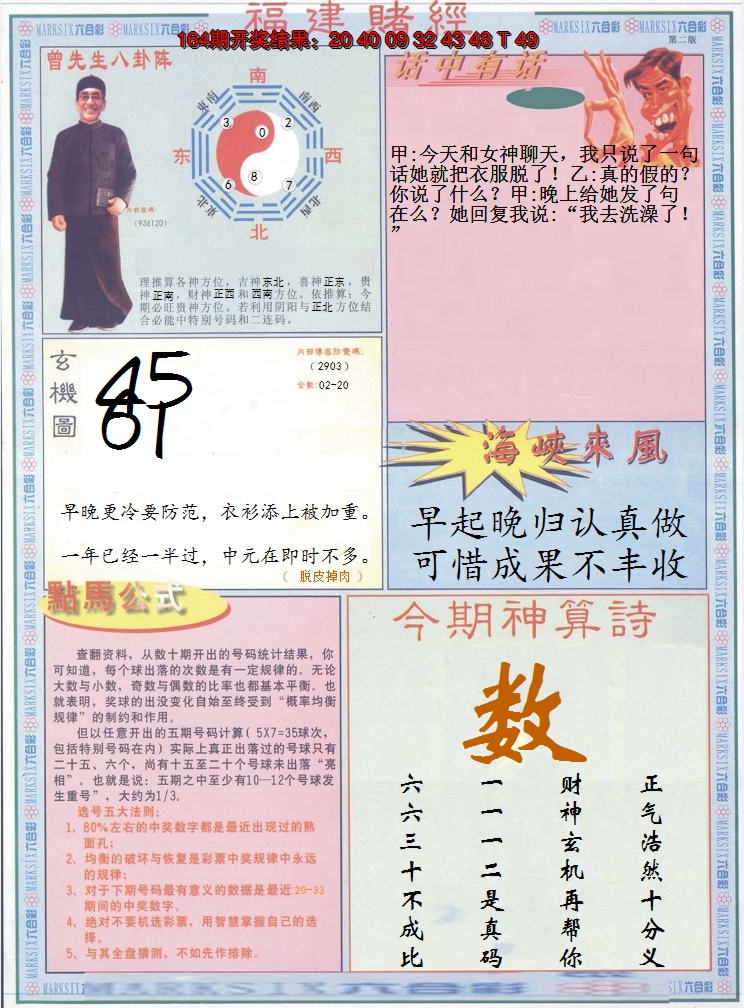 福建賭經
MARKSIX六合彩 MARKSIX六合彩 MARKSIX六合彩 MARKSIX六合彩
164期开奖结果：20 40 09 32 43 48 T 49
第二版
曾先生八卦阵
南
东南
西南
3
0
2
东
西
6
8
7
东北
西北
北
内部密码:
(936120)
理推算各神方位，吉神东北，喜神正东，贵
神正南，财神正西和西南方位。依推算：今
期必旺贵神方位。若利用阴阳与正北方位结
合必能中特别号码和二连码。
话中有话
甲:今天和女神聊天，我只说了一句
话她就把衣服脱了！乙:真的假的？
你说了什么？甲:晚上给她发了句
在么？她回复我说:“我去洗澡了！
”
玄機圖
45
61
内部傳密防密碼:
(2903)
合数:02-20
早晚更冷要防范，衣衫添上被加重。
一年已经一半过，中元在即时不多。
（脱皮掉肉）
海峽來風
早起晚归认真做
可惜成果不丰收
點馬公式
查翻资料，从数十期开出的号码统计结果，你
可知道，每个球出落的次数是有一定规律的。无论
大数与小数，奇数与偶数的比率也都基本平衡。也
就表明，奖球的出没变化自始至终受到“概率均衡
规律”的制约和作用。
但以任意开出的五期号码计算( 5X7=35球次，
包括特别号码在内) 实际上真正出落过的号球只有
二十五、六个，尚有十五至二十个号球未出落“亮
相”。也就是说：五期之中至少有10—12个号球发
生重号”，大约为1/3。
选号五大法则：
1、80%左右的中奖数字都是最近出现过的熟
面孔；
2、均衡的破坏与恢复是彩票中奖规律中永远
的规律；
3、对于下期号码最有意义的数据是最近20-33
期间的中奖数字。
4、绝对不要机选彩票，用智慧掌握自己的选
择。
5、与其全盘猜测，不如先作排除。
今期神算詩
数
正气浩然十分义
财神玄机再帮你
一一一二是真码
六六三十不成比